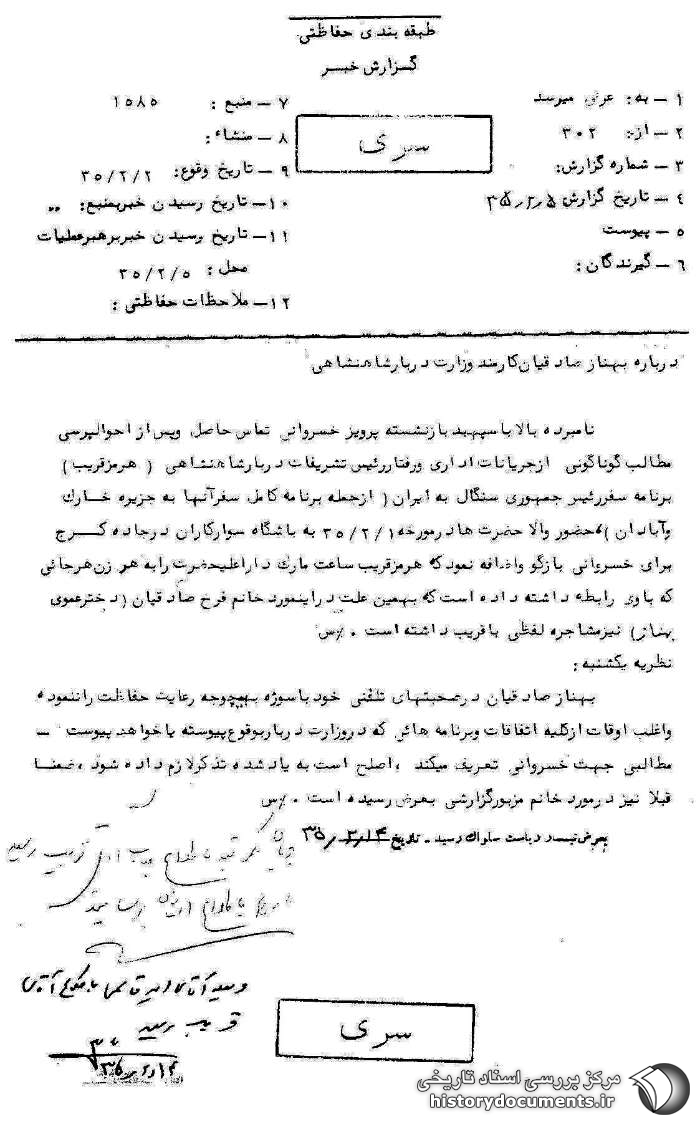 طبقه بندی حفاظتی
گزارش خبر
۱ – به: عرض میرسد
۲ – از: ۳۰۲
۳ – شماره گزارش:
۴ – تاریخ گزارش ۳۵/۲/۵
۵ – پیوست
۶ – گیرندگان:
سری
۷ – منبع: ۱۵۸۵
۸ – منشاء:
۹ – تاریخ وقوع: ۳۵/۲/۲
۱۰ – تاریخ رسیدن خبربمنبع: ۰۰
۱۱ – تاریخ رسیدن خبربرهبرعملیات
محل: ۳۵/۲/۵
۱۲ – ملاحظات حفاظتی:
درباره بهناز صادقیان کارمند وزارت دربارشاهنشاهی
نامبرده بالا با سپهبد بازنشسته پرویز خسروانی تماس حاصل وپس از احوالپرسی
مطالب گوناگونی ازجریانات اداری ورفتاررئیس تشریفات دربارشاهنشاهی (هرمزقریب)
برنامه سفررئیس جمهوری سنگال به ایران (ازجمله برنامه کامل سفرآنها به جزیره خارک
وآبادان)، حضور والا حضرت ها درمورخه ۳۵/۲/۱ به باشگاه سوارکاران درجاده کرج
برای خسروانی بازگو واضافه نمودکه هرمزقریب ساعت مارک داراعلیحضرت رابه هر زن هرجائی
که باوی رابطه داشته داده است که بهمین علت دراینمورد خانم فرخ صادقیان (دخترعموی
بهناز) نیزمشاجره لفظی باقریب داشته است. %س
نظریه یکشنبه:
بهناز صادقیان درصحبتهای تلفنی خود باسوژه بهیچوجه رعایت حفاظت راننموده
واغلب اوقات ازکلیه اتفاقات وبرنامه هائی که دروزارت درباربوقوع پیوسته یاخواهد پیوست –
مطالبی جهت خسروانی تعریف میکند، اصلح است به یاد شده تذکرلازم داده شود، ضمنا
قبلا نیز درمورد خانم مزبورگزارشی بعرض رسیده است. %س
بعرض تیمسار ریاست ساواک رسید – تاریخ ۳۵/۲/۱۴
قریب رسید
۳۵/۲/۱۴
سری
مرکز بررسی اسناد تاریخی
historydocuments.ir